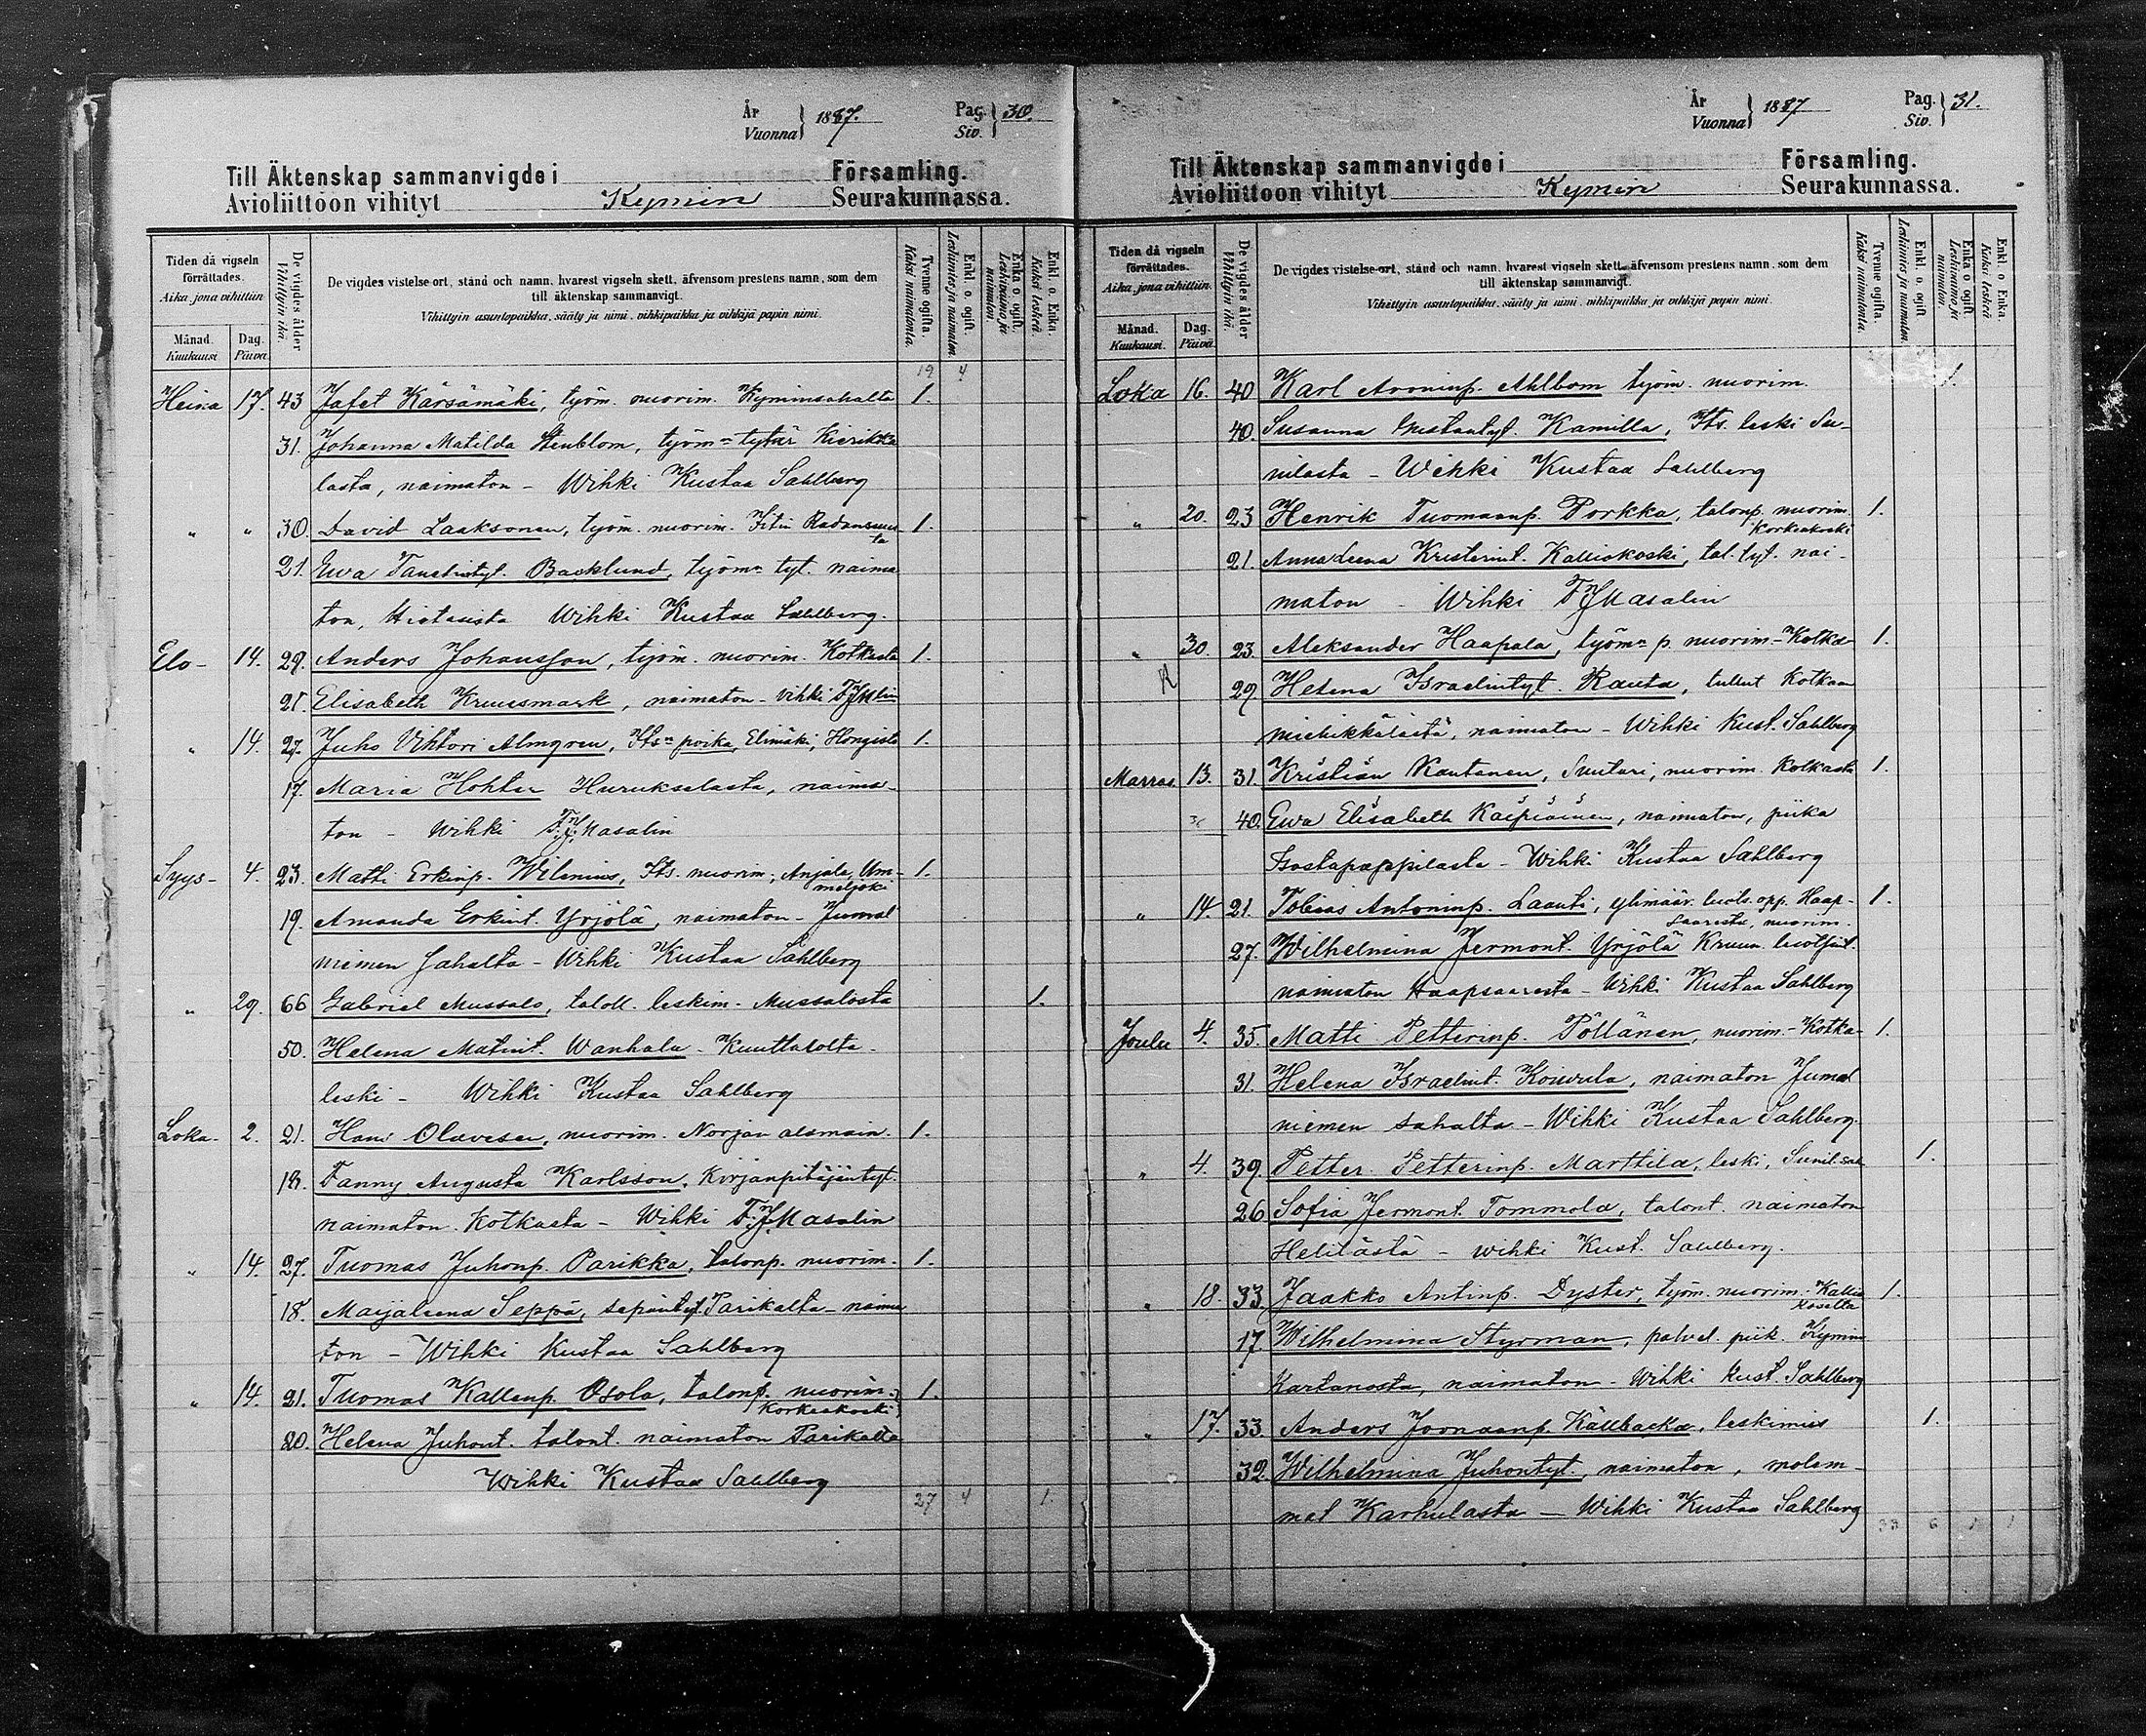 År
Vuonna } 1887. Pag. Siv. } 30.
Till Äktenskap sammanvigde i Församling.
Avioliittoon vihityt Kymin Seurakunnassa.
Tiden då vigseln förrättades.
Aika, jona vihittiin
Månad. Kuukausi.
Dag. Päivä
De vigdes ålder
Vihittyin ikä.
De vigdes vistelse ort, stånd och namn, hvarest vigseln skett, äfvensom prestens namn, som dem
till äktenskap sammanvigt.
Vihittyin asuntopaikka, sääty ja nimi, vihkipaikka ja vihkijä papin nimi.
Tvenne ogifta.
Kaksi naimatonta.
Enkl. o. ogift.
Leskimies ja naimaton.
Enka o ogift.
Leskivaimo ja naimaton.
Enkl. o. Enka.
Kaksi leskeä
19 4
Heina 17. 43 Jafet Kärsämäki, työm. nuorim. Kyminsahalta 1.
31. Johanna Matilda Stenblom, työm. tytär Kierikka
lasta, naimaton - Wihki Kustaa Sahlberg
" " 30. David Laaksonen, työm. nuorim. Iitin 1.
21. Ewa Tanelintyt. Backlund, työm. tyt. naima
ton, Wihki Kustaa Sahlberg.
Elo- 14. 29. Anders Johansson, työm. nuorim. Kotkasta 1.
21. Elisabeth Kruusmark, naimaton - vihki
" 14. 27. Juho Vihtori Almgren, Its. poika, Elimäki, 1.
17. Maria Hohter Hurukselasta, naima-
ton - Wihki F.J. Masalin
Syys- 4. 23. Matti Erkinp. Wilenius, Its. nuorim., Anjala, Um- 1.
meljoki
19. Amanda Erkint. Yrjölä, naimaton - Jumal
niemen sahalta - Wihki Kustaa Sahlberg
" 29. 66 Gabriel Mussalo, taloll. leskim. Mussalosta 1.
50. Helena Matint. Wanhala - Kuuttalolta
leski - Wihki Kustaa Sahlberg
Loka. 2. 21. Hans Olavesen, nuorim. Norjan alamain. 1.
18. Fanny Augusta Karlsson, Kirjanpitäjäntyt.
naimaton. Kotkasta - Wihki F.J. Masalin
" 14. 27. Tuomas Juhonp. Parikka, talonp. nuorim. 1.
18 Maijaleena Seppä, sepäntyt. Parikalta - naima
ton - Wihki Kustaa Sahlberg
" 14. 21. Tuomas Kallenp. Osola, talonp. nuorim. 1.
Korkeakoski
20. Helena Juhont. talont. naimaton Parikalta
Wihki Kustaa Sahlberg
27 4 1.
År
Vuonna } 1887 Pag. Siv. } 31.
Till Äktenskap sammanvigde i Församling.
Avioliittoon vihityt Kymin Seurakunnassa.
Tiden då vigseln förrättades.
Aika, jona vihittiin.
Månad. Kuukausi.
Dag. Päivä.
De vigdes ålder
Vihittyin ikä.
De vigdes vistelse-ort, stånd och namn, hvarest vigseln skett, äfvensom prestens namn, som dem
till äktenskap sammanvigt.
Vihittyin asuntopaikka, sääty ja nimi, vihkipaikka ja vihkijä papin nimi.
Tvenne ogifta.
Kaksi naimatonta.
Enkl. o. ogift
Leskimies ja naimaton
Enka o ogift
Leskivaimo ja naimaton.
Enkl. o Enka.
Kaksi leskeä
Loka 16. 40 Karl Aroninp. Ahlbom työm. nuorim. 1.
40. Susanna Kustantyt. Kamilla, Its. leski Su-
nilasta - Wihki Kustaa Sahlberg
" 20. 23 Henrik Tuomaanp. Porkka, talonp. nuorim. 1.
Korkeakoski
21. Anna Leena Kristerint. Kalliokoski, tal. tyt. nai-
maton - Wihki F.J. Masalin
" 30. 23. Aleksander Haapala, työm. p. nuorim. - Kotka 1.
29. Helena Israelintyt. Rauta, tullut Kotkaan
miehikkälästä, naimaton - Wihki Kust. Sahlberg
Marras. 13. 31. Kristian Rautanen, Suutari, nuorim. Kotkasta 1.
40. Ewa Elisabeth Kaipiainen, naimaton, piika
Isostapappilasta - Wihki Kustaa Sahlberg
" 14. 21. Tobias Antoninp. Laanti, ylimäär. luots. opp. Haap- 1.
saaresta, nuorim.
27. Wilhelmina Jermont. Yrjölä Kruun.
naimaton Haapsaaresta - Wihki Kustaa Sahlberg
Joulu 4. 35. Matti Petterinp. Pöllänen, nuorim. - Kotka 1.
31. Helena Israelint. Koiwula, naimaton Jumal
niemen sahalta - Wihki Kustaa Sahlberg.
" 4. 39. Petter Petterinp. Marttila, leski, Sunil. sah 1.
26 Sofia Jermont. Tommola, talont. naimaton
Helilästä - wihki Kust. Sahlberg.
" 18. 33. Jaakko Antinp. Dyster, työm. nuorim. Kallio 1.
koselta
17. Wilhelmina Styrman, palvel. piik. Kymin
Kartanosta, naimaton - Wihki Kust. Sahlberg
" 17. 33. Anders Joonaanp. Källbacka, leskimies 1.
32. Wilhelmina Juhontyt., naimaton, molem-
mat Karhulasta - Wihki Kustaa Sahlberg
33 6 1 1